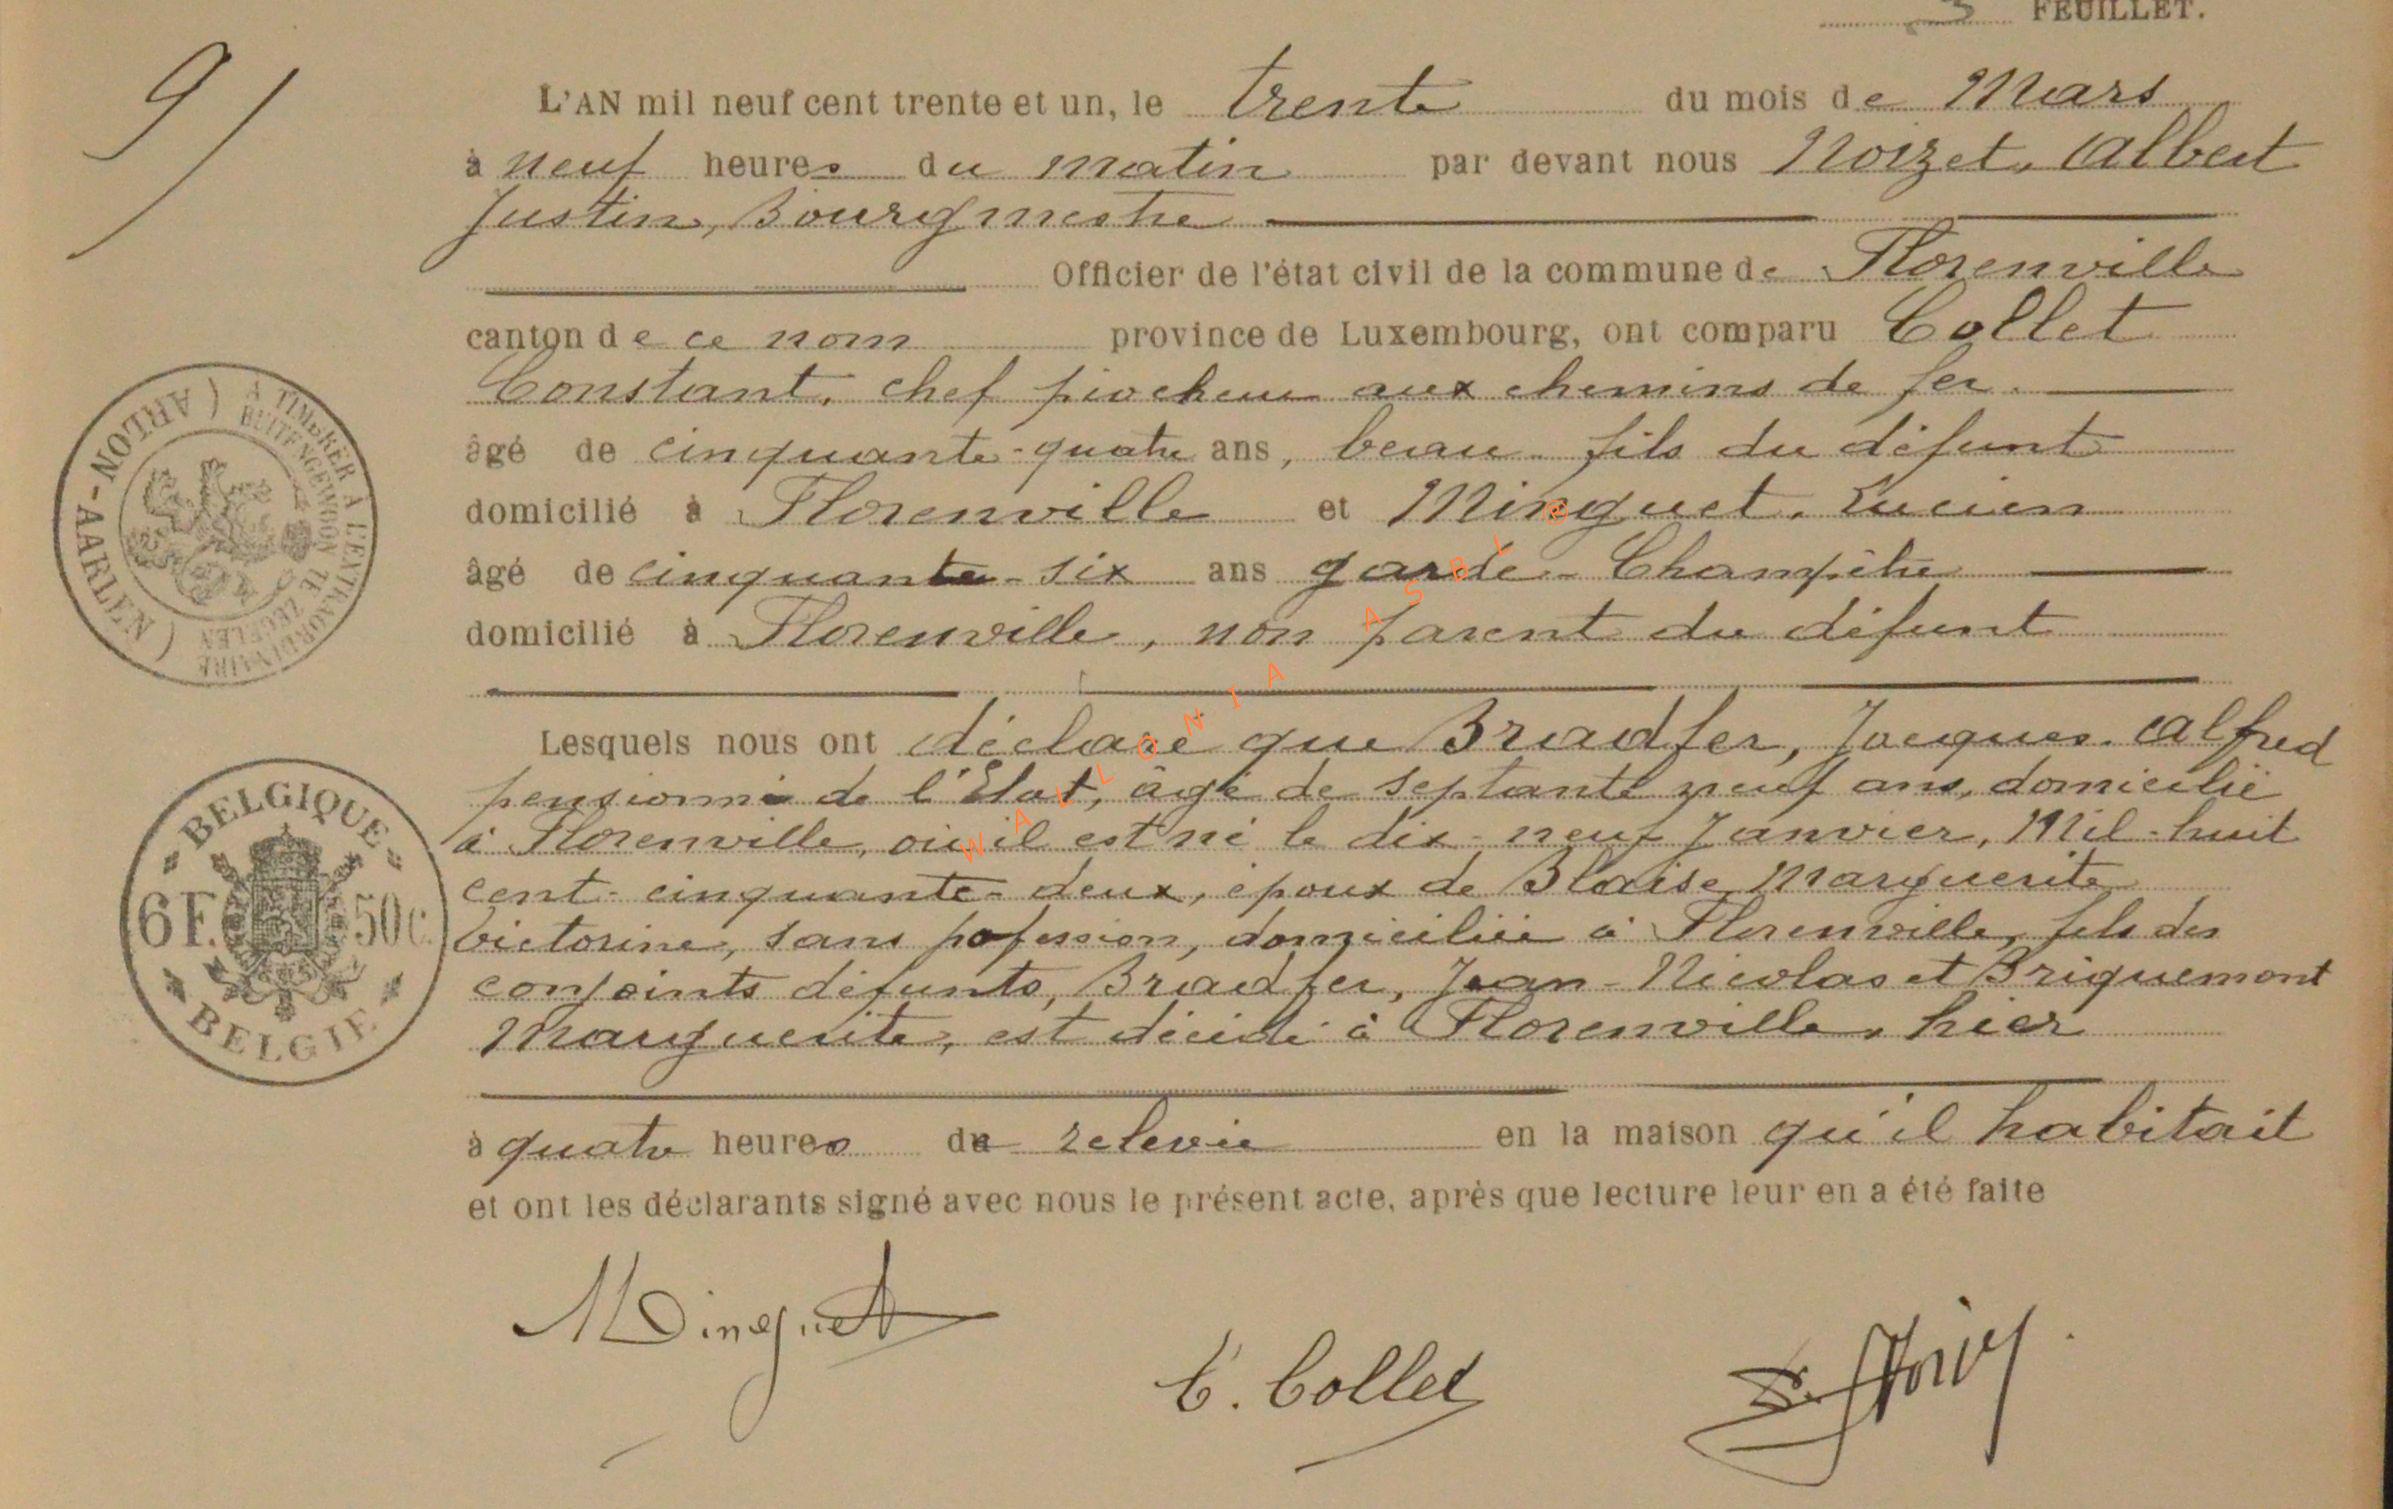 3 FEUILLET.
9
L'AN mil neuf cent trente et un, le trente du mois de Mars
à neuf heures du matin par devant nous Noizet, Albert
Justin, Bourgmestre
Officier de l'état civil de la commune de Florenville
canton de ce nom province de Luxembourg, ont comparu Collet
Constant, chef piocheur aux chemins de fer.
âgé de cinquante-quatre ans, beau-fils du défunt
domicilié à Florenville et Minguet, Lucien
âgé de cinquante-six ans garde-Champêtre
domicilié à Florenville, non parent du défunt
Lesquels nous ont déclaré que Bradfer, Jacques-Alfred
pensionné de l'Etat, âgé de septante neuf ans, domicilié
à Florenville, où il est né le dix-neuf Janvier, Mil-huit
cent-cinquante-deux, époux de Blaise, Marguerite
Victorine, sans pofession, domiciliée à Florenville, fils des
conjoints défunts, Bradfer, Jean-Nicolas et Briquemont
Marguerite, est décédé à Florenville, hier
à quatre heures de relevée en la maison qu'il habitait
et ont les déclarants signé avec nous le présent acte, après que lecture leur en a été faite
Minguet
C. Collet
ARLON-AARLEN
TIMBRER À L'EXTRAORDINAIRE
BUITENGEWOON TE ZEGELEN
BELGIQUE
6F. 50c.
BELGIE
WALLONIA ASBL ©